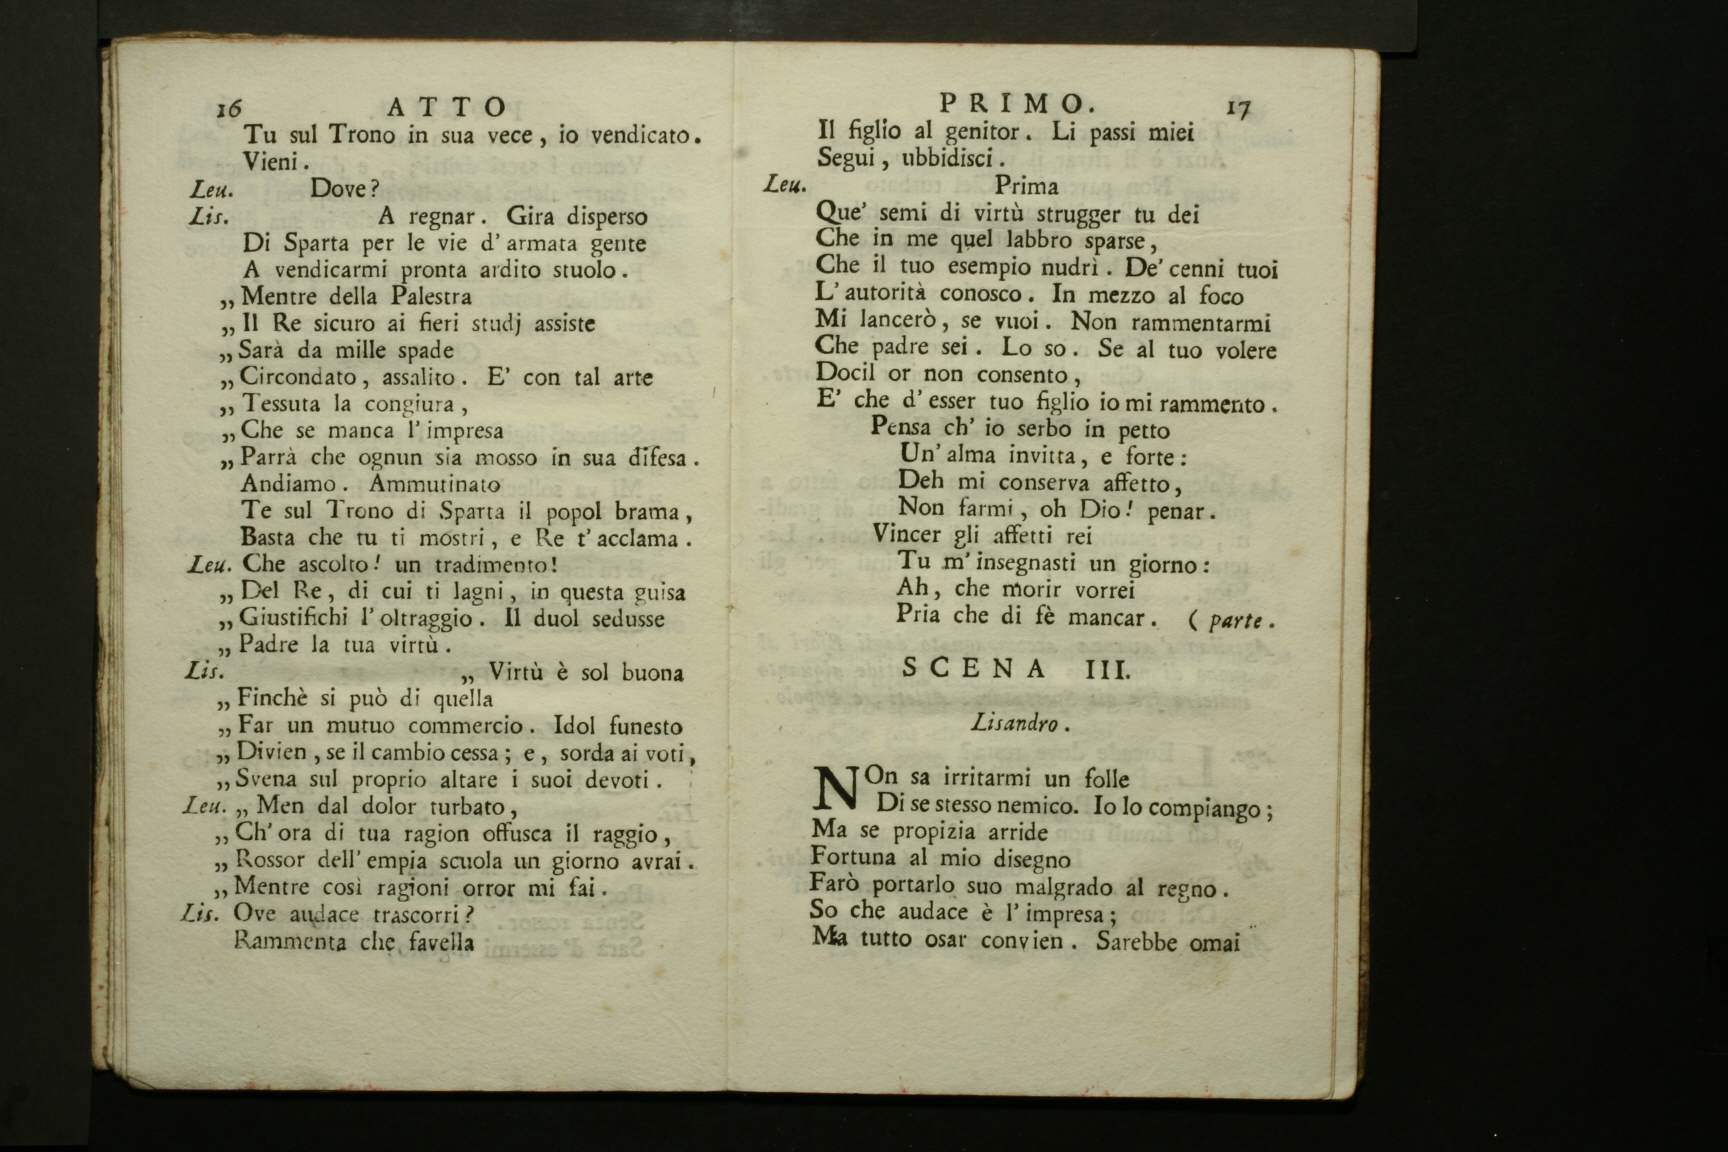 16 ATTO
Tu sul Trono in sua vece, io vendicato.
Vieni.
Leu. Dove?
Lis. A regnar. Gira disperso
Di Sparta per le vie d'armata gente
A vendicarmi pronta ardito stuolo.
„ Mentre della Palestra
„ Il Re sicuro ai fieri studj assiste
„ Sarà da mille spade
„ Circondato, assalito. E' con tal arte
„ Tessuta la congiura,
„ Che se manca l'impresa
„ Parrà che ognun sia mosso in sua difesa.
Andiamo. Ammutinato
Te sul Trono di Sparta il popol brama,
Basta che tu ti mostri, e Re t'acclama.
Leu. Che ascolto! un tradimento!
„ Del Re, di cui ti lagni, in questa guisa
„ Giustifichi l'oltraggio. Il duol sedusse
„ Padre la tua virtù.
Lis. „ Virtù è sol buona
„ Finchè si può di quella
„ Far un mutuo commercio. Idol funesto
„ Divien, se il cambio cessa; e, sorda ai voti,
„ Svena sul proprio altare i suoi devoti.
Leu. „ Men dal dolor turbato,
„ Ch'ora di tua ragion offusca il raggio,
„ Rossor dell'empia scuola un giorno avrai.
„ Mentre così ragioni orror mi fai.
Lis. Ove audace trascorri?
Rammenta che favella
PRIMO. 17
Il figlio al genitor. Li passi miei
Segui, ubbidisci.
Leu. Prima
Que' semi di virtù strugger tu dei
Che in me quel labbro sparse,
Che il tuo esempio nudrì. De' cenni tuoi
L'autorità conosco. In mezzo al foco
Mi lancerò, se vuoi. Non rammentarmi
Che padre sei. Lo so. Se al tuo volere
Docil or non consento,
E' che d'esser tuo figlio io mi rammento.
Pensa ch'io serbo in petto
Un'alma invitta, e forte:
Deh mi conserva affetto,
Non farmi, oh Dio! penar.
Vincer gli affetti rei
Tu m'insegnasti un giorno:
Ah, che morir vorrei
Pria che di fè mancar. (parte.
SCENA III.
Lisandro.
NOn sa irritarmi un folle
Di se stesso nemico. Io lo compiango;
Ma se propizia arride
Fortuna al mio disegno
Farò portarlo suo malgrado al regno.
So che audace è l'impresa;
Ma tutto osar convien. Sarebbe omai